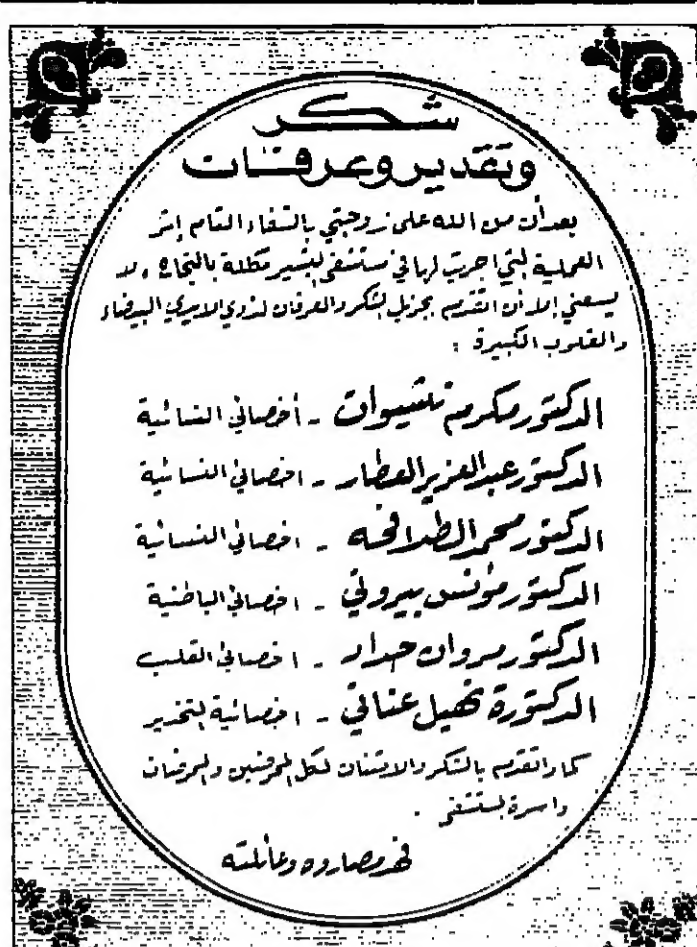 شكر
وتقدير وعرفان
بعد أن من الله على زوجتي بالشفاء التام إثر
العملية التي اجريت لها في مستشفى البشير مكللة بالنجاح، لا
يسعني إلا أن اتقدم بجزيل الشكر والعرفان لذوي الايدي البيضاء
والقلوب الكبيرة :
الدكتور مكرم - أخصائي النسائية
الدكتور عبد العزيز العطار - اخصائي النسائية
الدكتور محمد الطلافحه - اخصائي النسائية
الدكتور مؤنس بيروتي - اخصائي الباطنية
الدكتور مروان حداد - اخصائي القلب
الدكتورة نهيل عناني - اخصائية التخدير
كما واتقدم بالشكر والامتنان لكل الممرضين والممرضات
واسرة المستشفى .
فهد مصاروه وعائلته